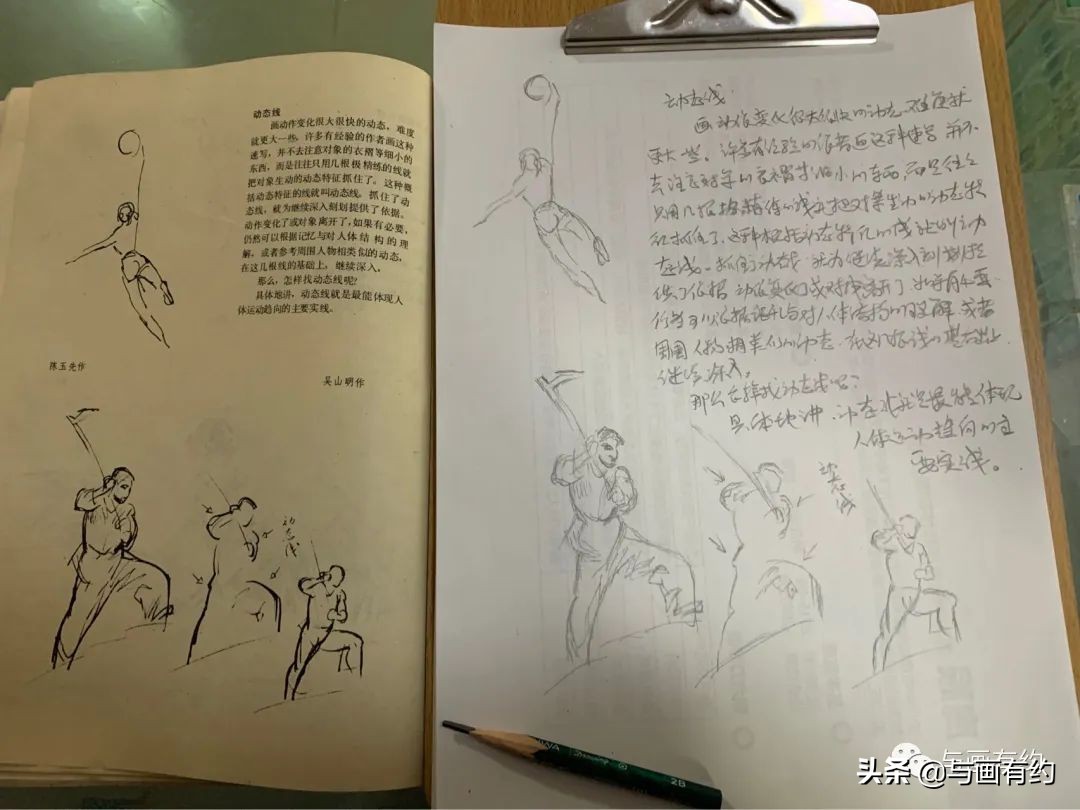 动态线
画动作变化很大很快的动态，难度
就更大一些，许多有经验的作者画这种
速写，并不去注意对象的衣褶等细小的
东西，而是往往只用几根极精练的线就
把对象生动的动态特征抓住了。这种概
括动态特征的线就叫动态线。抓住了动
态线，就为继续深入刻划提供了依据。
动作变化了或对象离开了，如果有必要，
仍然可以根据记忆与对人体结构的理
解，或者参考周围人物相类似的动态，
在这几根线的基础上，继续深入。
那么，怎样找动态线呢？
具体地讲，动态线就是最能体现人
体运动趋向的主要实线。
陈玉先作
吴山明作
动态线
动态线
画动作变化很大很快的动态，难度就
更大些。许多有经验的作者画这种速写，并不
去注意对象的衣褶等细小的东西，而是往往
只用几根极精练的线就把对象生动的动态特
征抓住了。这种概括动态特征的线就叫动
态线。抓住了动态线，就为继续深入刻划提
供了依据
或者
周围人物相类似的动态，在这几根线的基础上，
继续深入。
那么怎样找动态线呢？
具体地讲，动态线就是最能体现
人体运动趋向的主
要实线。
动态线
2B
与画有约
头条 @与画有约